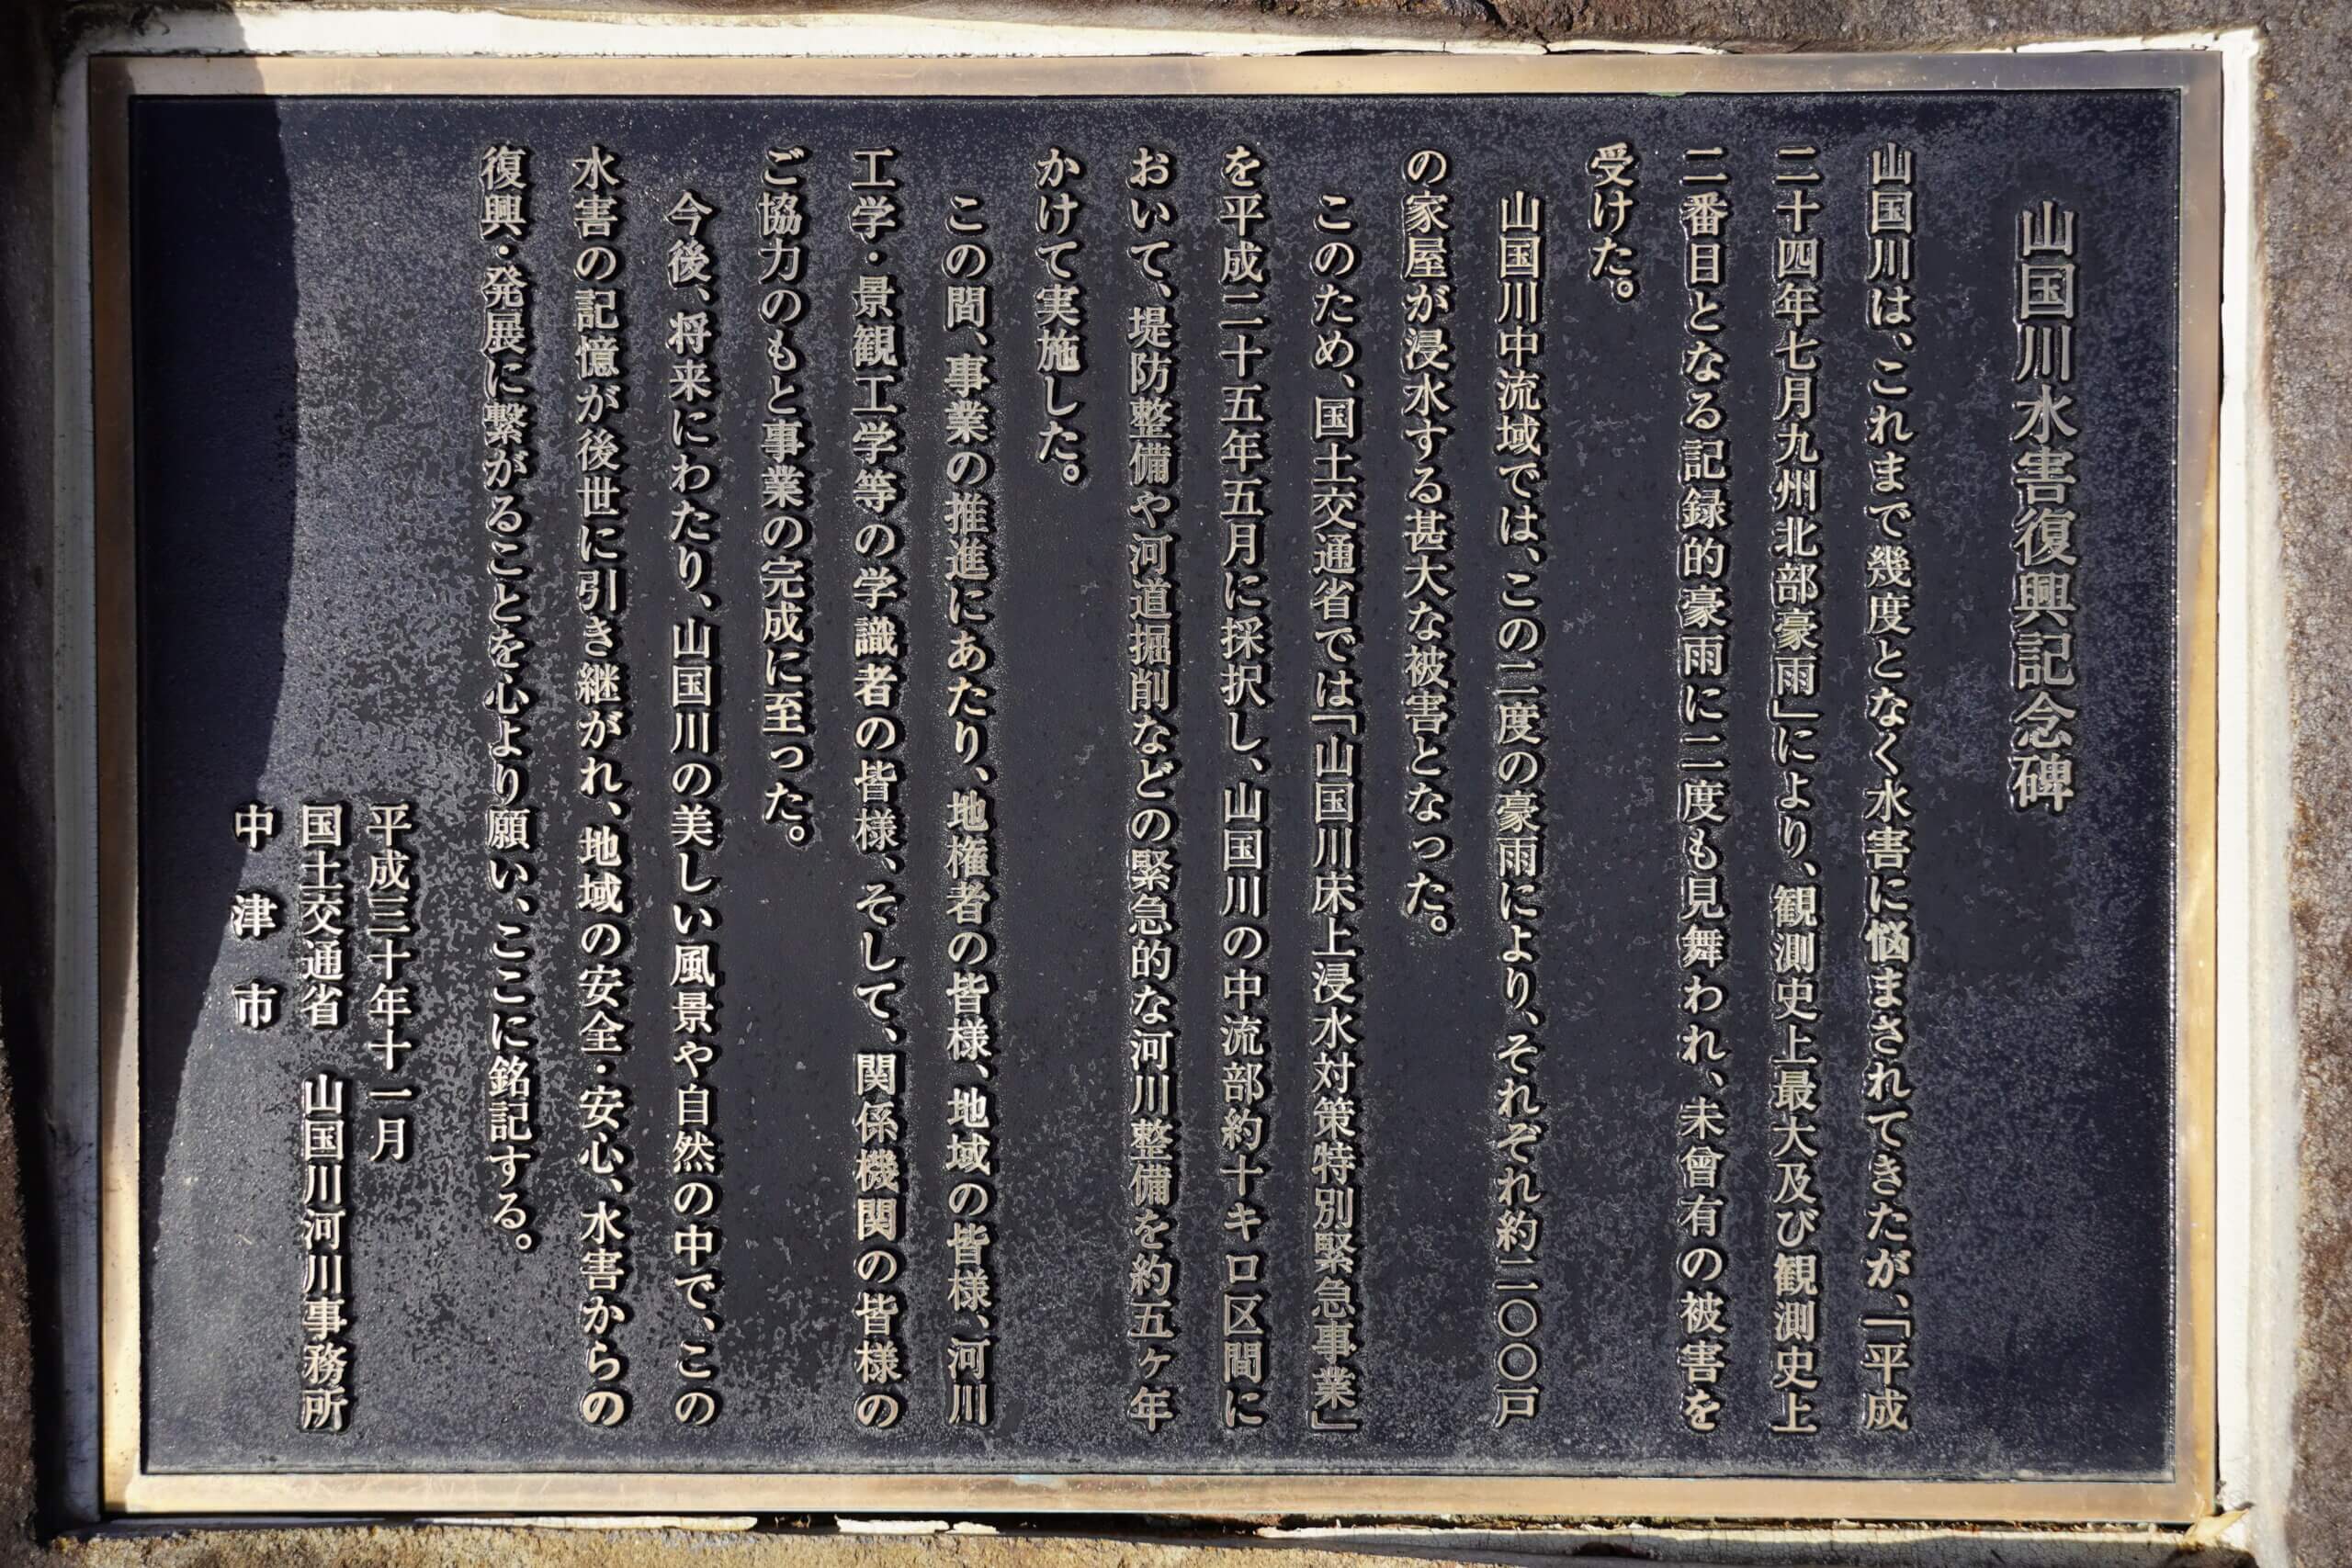 山国川水害復興記念碑
山国川は、これまで幾度となく水害に悩まされてきたが、「平成
二十四年七月九州北部豪雨」により、観測史上最大及び観測史上
二番目となる記録的豪雨に二度も見舞われ、未曾有の被害を
受けた。
山国川中流域では、この二度の豪雨により、それぞれ約二〇〇戸
の家屋が浸水する甚大な被害となった。
このため、国土交通省では「山国川床上浸水対策特別緊急事業」
を平成二十五年五月に採択し、山国川の中流部約十キロ区間に
おいて、堤防整備や河道掘削などの緊急的な河川整備を約五ヶ年
かけて実施した。
この間、事業の推進にあたり、地権者の皆様、地域の皆様、河川
工学・景観工学等の学識者の皆様、そして、関係機関の皆様の
ご協力のもと事業の完成に至った。
今後、将来にわたり、山国川の美しい風景や自然の中で、この
水害の記憶が後世に引き継がれ、地域の安全・安心、水害からの
復興・発展に繋がることを心より願い、ここに銘記する。
平成三十年十一月
国土交通省 山国川河川事務所
中津市